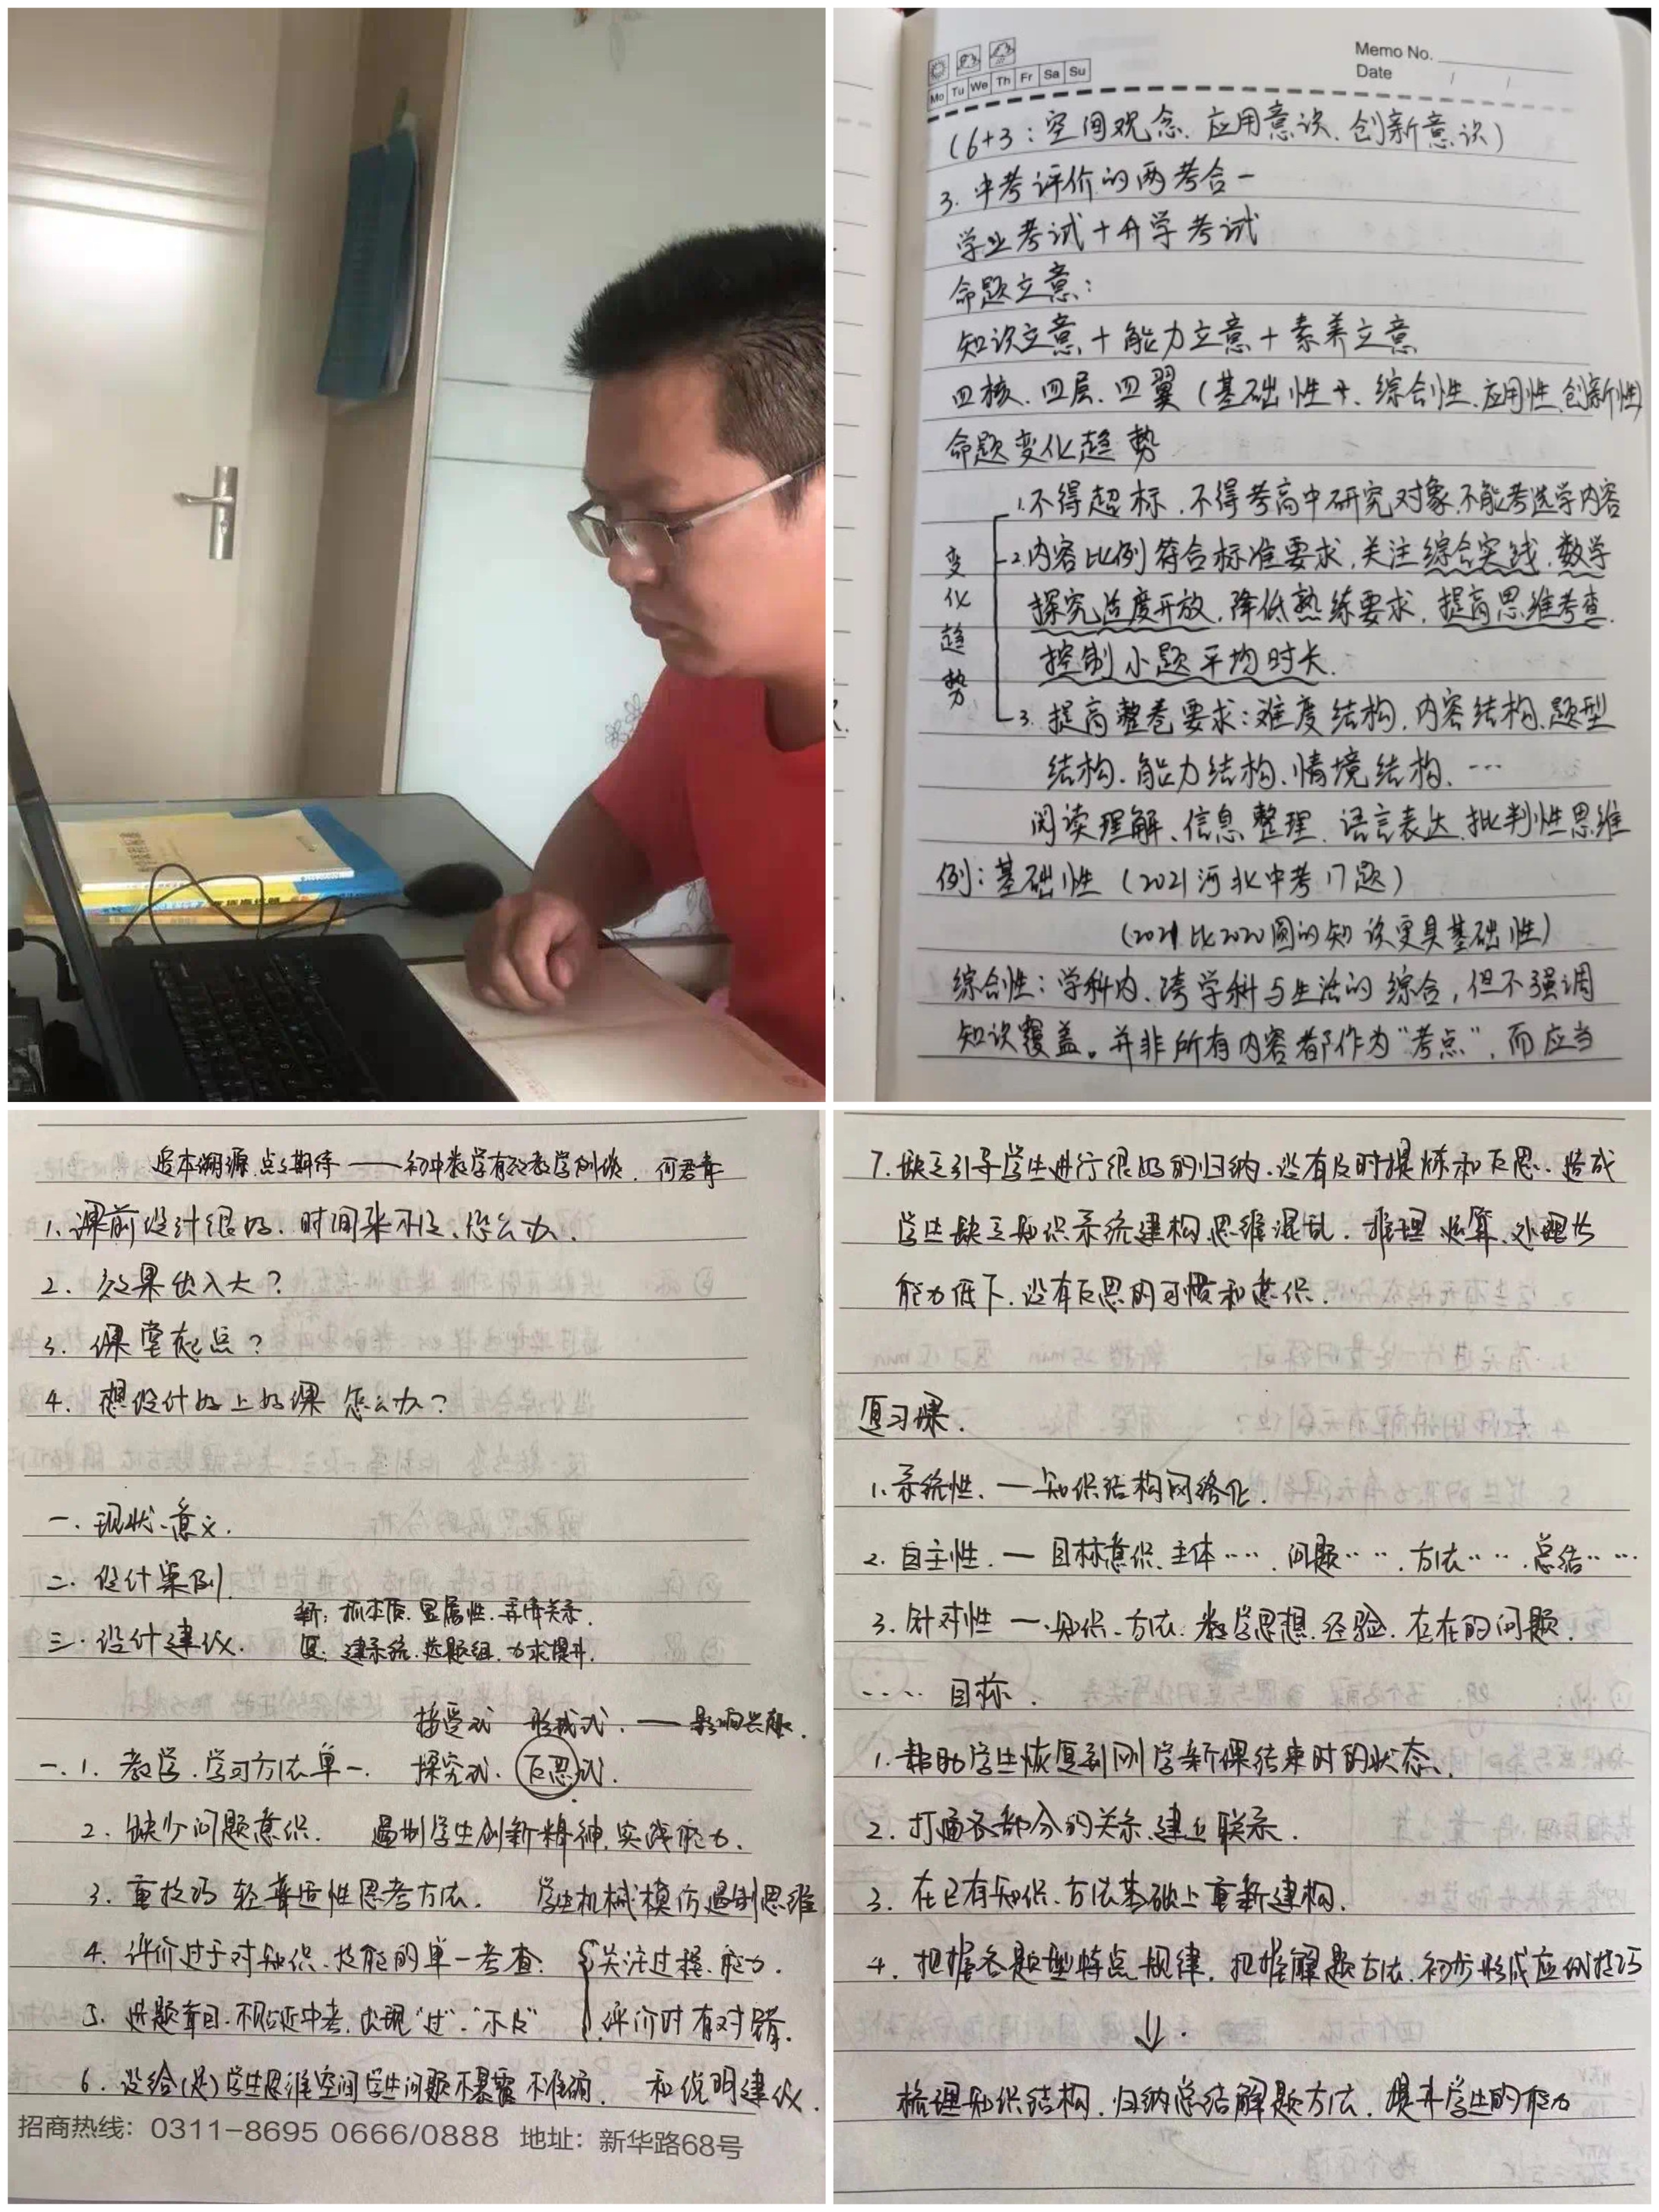 Memo No.
Date
Mo Tu We Th Fr Sa Su
(6+3：空间观念、应用意识、创新意识)
3. 中考评价的两考合一
学业考试+升学考试
命题立意：
知识立意+能力立意+素养立意
四核、四层、四翼(基础性、综合性、应用性、创新性)
命题变化趋势
变化趋势
1.不得超标，不得考高中研究对象，不能考选学内容
2.内容比例符合标准要求，关注综合实践、数学
探究适度开放，降低熟练要求，提高思维考查，
控制小题平均时长.
3. 提高整卷要求：难度结构、内容结构、题型
结构、能力结构、情境结构、…
阅读理解、信息整理、语言表达、批判性思维
例：基础性 (2021河北中考17题)
(2021比2020圆的知识更具基础性)
综合性：学科内、跨学科与生活的综合，但不强调
知识覆盖。并非所有内容都作为“考点”，而应当
追本溯源 点亮期待——初中数学有效教学例谈. 何君青
1. 课前设计很好，时间来不及，怎么办.
2. 效果出入大？
3. 课堂起点？
4. 想设计好上好课 怎么办？
一. 现状、意义.
二. 设计案例.
三. 设计建议.
新：抓本质. 显属性. 弄清关系.
复：建系统. 选题组. 力求提升.
接受式 形成式. — 影响兴趣.
一. 1. 教学、学习方法单一. 探究式. 反思式.
2. 缺少问题意识. 遏制学生创新精神、实践能力.
3. 重技巧 轻普适性思考方法. 学生机械模仿遏制思维
4. 评价过于对知识、技能的单一考查. 关注过程、能力.
5. 选题盲目. 不贴近中考. 出现“过”、“不及” 评价时有对错.
6. 没给(足)学生思维空间学生问题不暴露 不准确. 和说明建议.
招商热线：0311-8695 0666/0888 地址：新华路68号
7. 缺乏引导学生进行很好的归纳. 没有及时提炼和反思. 造成
学生缺乏知识系统建构思维混乱. 推理 运算、处理
能力低下. 没有反思的习惯和意识.
复习课.
1. 系统性. — 知识结构网络化.
2. 自主性. — 目标意识、主体…… 问题…… 方法…… 总结……
3. 针对性 — 知识、方法、数学思想、经验、存在的问题.
…… 目标.
1. 帮助学生恢复到刚学新课结束时的状态.
2. 打通各部分的关系、建立联系.
3. 在已有知识、方法基础上重新建构.
4. 把握各题型特点、规律、把握解题方法、初步形成应试技巧
↓.
梳理知识结构、归纳总结解题方法、提升学生的能力